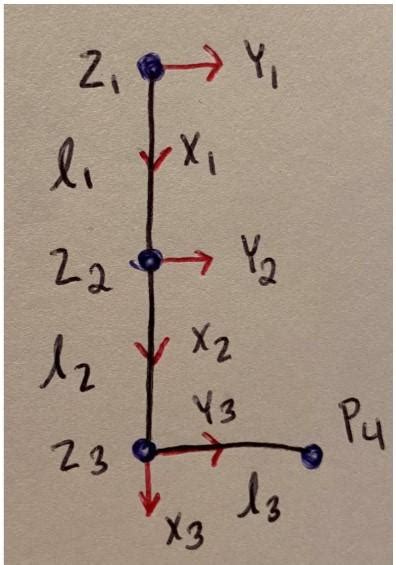 Z₁ Y₁
l₁ X₁
Z₂ Y₂
l₂ X₂
Y₃ P₄
Z₃
l₃
X₃